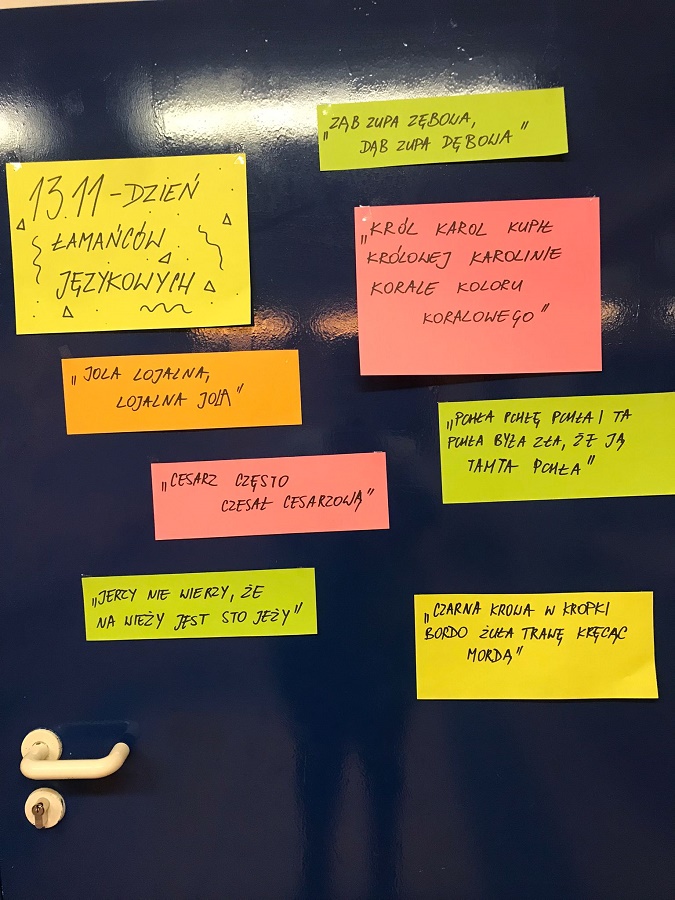 13.11 - DZIEŃ
ŁAMAŃCÓW
JĘZYKOWYCH
„ZĄB ZUPA ZĘBOWA,
DĄB ZUPA DĘBOWA”
„KRÓL KAROL KUPIŁ
KRÓLOWEJ KAROLINIE
KORALE KOLORU
KORALOWEGO”
„JOLA LOJALNA,
LOJALNA JOLA”
„PCHŁA PCHŁĘ PCHŁA I TA
PCHŁA BYŁA ZŁA, ŻE JĄ
TAMTA PCHŁA”
„CESARZ CZĘSTO
CZESAŁ CESARZOWĄ”
„JERZY NIE WIERZY, ŻE
NA WIEŻY JEST STO JEŻY”
„CZARNA KROWA W KROPKI
BORDO ŻUŁA TRAWĘ KRĘCĄC
MORDĄ”